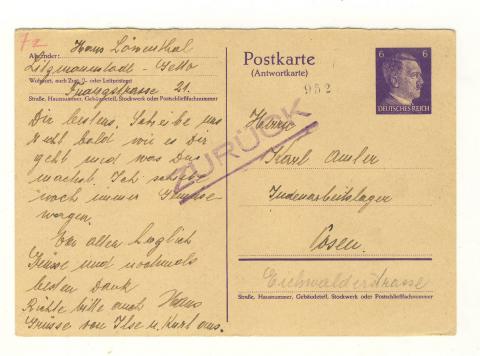 72
Absender: Hans Löwenthal
Litzmannstadt-Getto
Wohnort, auch Zust.- oder Leitpostamt
Franzstrasse 21.
Straße, Hausnummer, Gebäudeteil, Stockwerk oder Postschließfachnummer
Dir bestens. Schreibe uns
recht bald wie es Dir
geht und was Du
machst. Ich
noch immer Grüsse
Von allen herzlich
Grüsse und nochmals
besten Dank
Hans
Richte bitte auch
Grüsse von Ilse u. Kurt aus.
Postkarte
(Antwortkarte)
952
6 6
DEUTSCHES REICH
ZURÜCK
Herrn
Karl
Judenarbeitslager
Posen.
Eichwalderstrasse
Straße, Hausnummer, Gebäudeteil, Stockwerk oder Postschließfachnummer